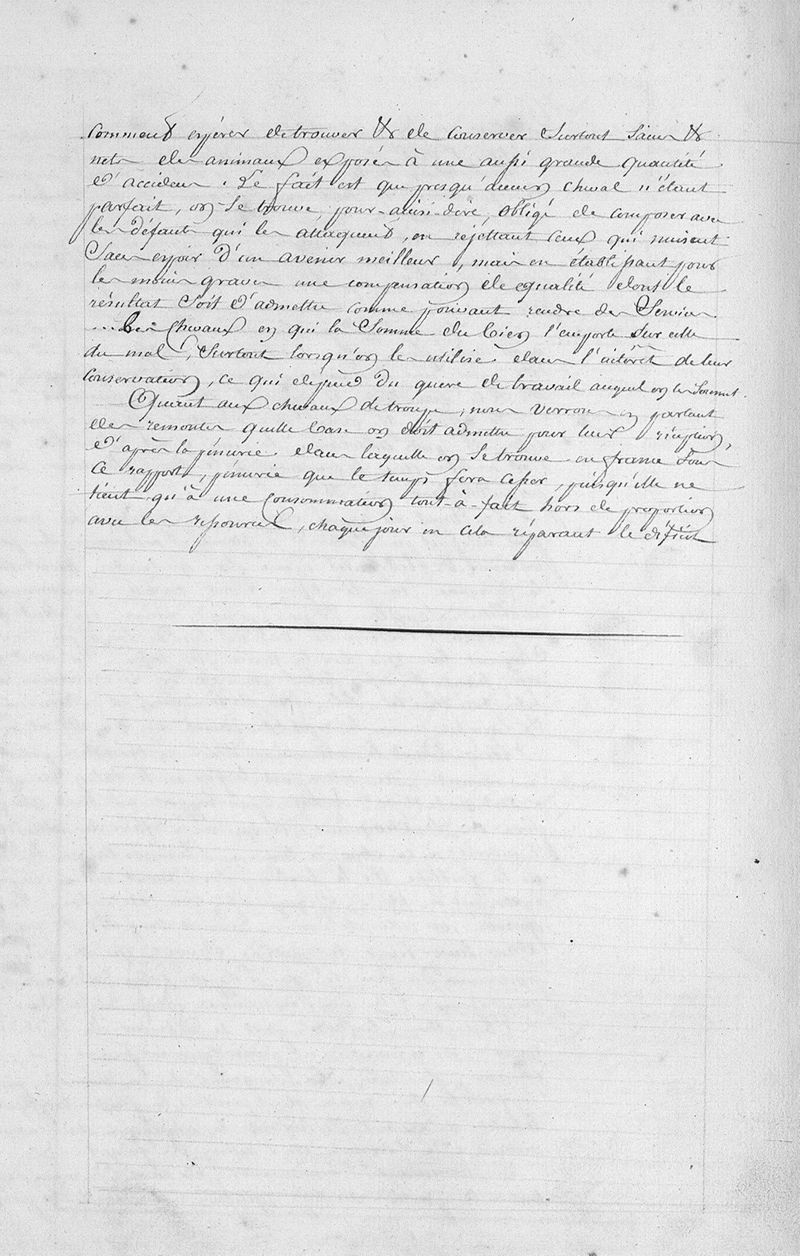 comment espérer de trouver & de conserver surtout sains &
nets des animaux exposés à une aussi grande quantité
d'accidens. Le fait est que presqu'aucun cheval n'étant
parfait, on se trouve, pour-ainsi-dire, obligé de composer avec
les défauts qui les attaquent, en rejettant ceux qui nuisent
sans espoir d'un avenir meilleur, mais en établissant pour
les moins graves une compensation de qualité dont le
résultat soit d'admettre comme pouvant rendre des services
les chevaux en qui la somme du bien l'emporte sur celle
du mal, surtout lorsqu'on les utilise dans l'intérêt de leur
conservation, ce qui dépend du genre de travail auquel on les soumet.
Quant aux chevaux de troupe, nous verrons en parlant
des remontes quelle base on doit admettre pour leur réception,
d'après la pénurie dans laquelle on se trouve en france sous
ce rapport, pénurie que le temps fera cesser, puisqu'elle ne
tient qu'à une consommation tout-à-fait hors de proportion
avec les ressources, chaque jour en cela réparant le déficit